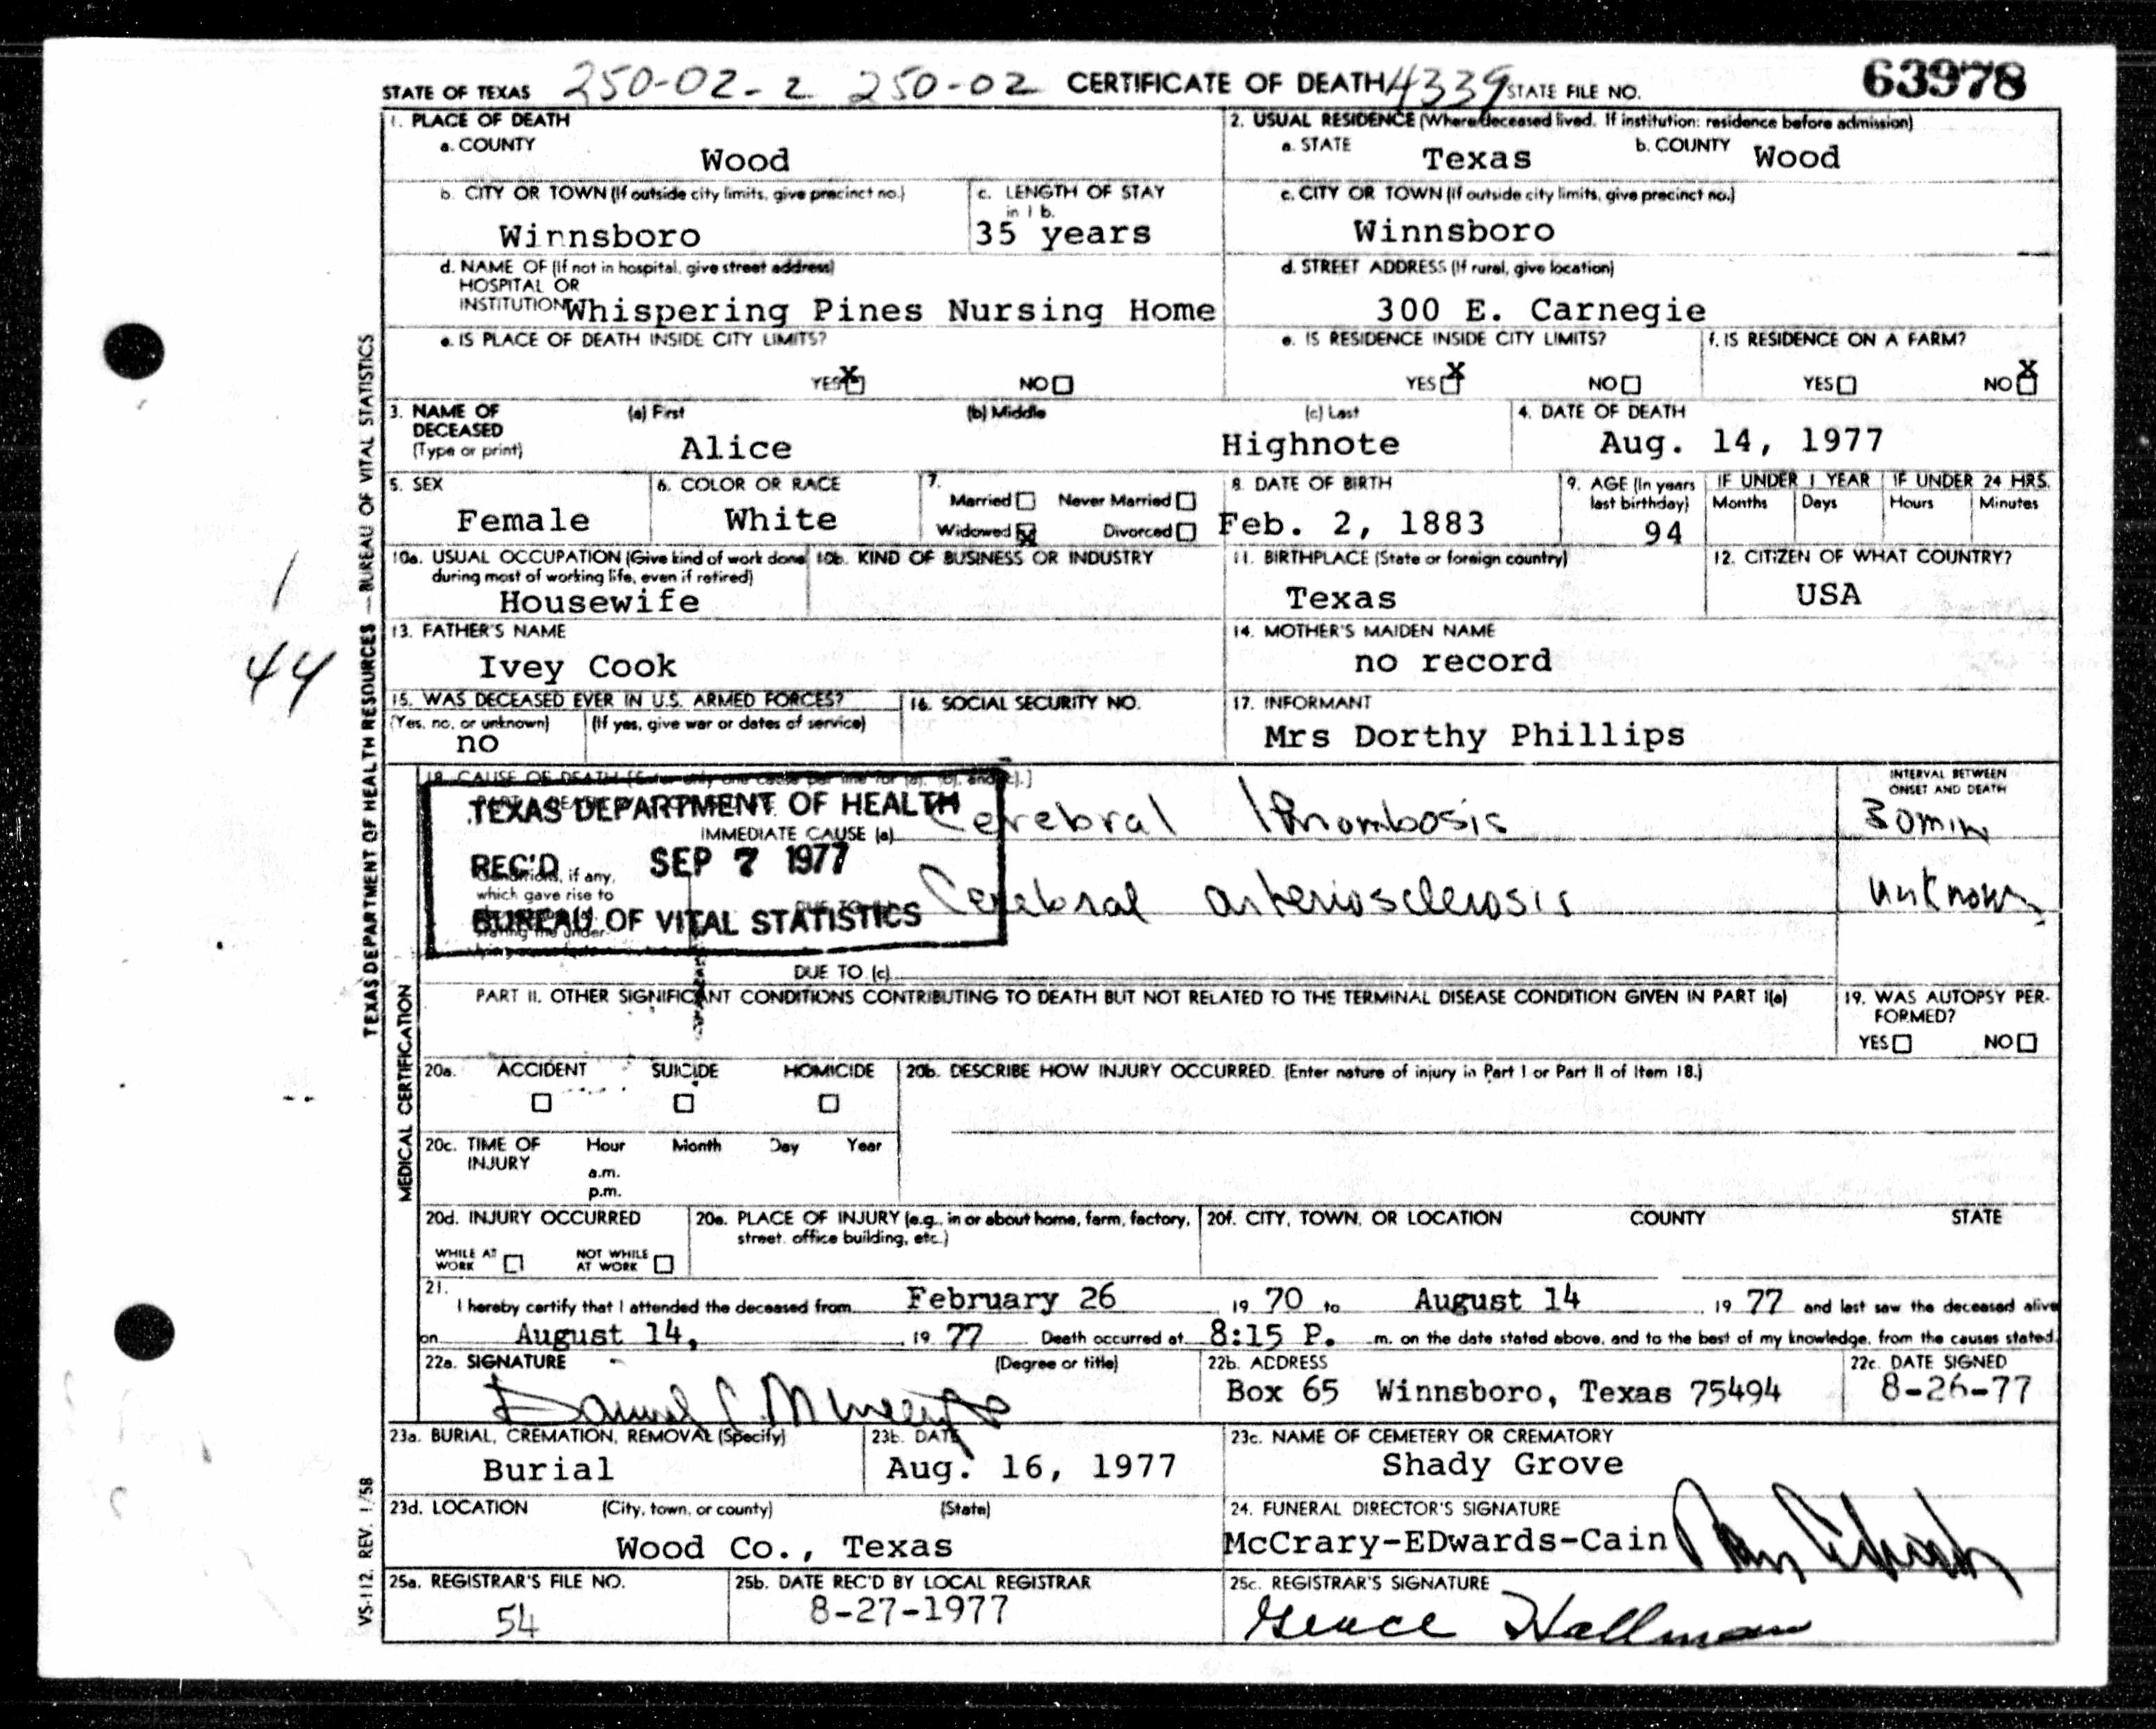 STATE OF TEXAS 250-02-2 250-02 CERTIFICATE OF DEATH 4339 STATE FILE NO. 63978
1. PLACE OF DEATH
a. COUNTY
Wood
2. USUAL RESIDENCE (Where deceased lived. If institution: residence before admission)
a. STATE
Texas
b. COUNTY
Wood
b. CITY OR TOWN (If outside city limits, give precinct no.)
Winnsboro
c. LENGTH OF STAY
in 1 b.
35 years
c. CITY OR TOWN (If outside city limits, give precinct no.)
Winnsboro
d. NAME OF (If not in hospital, give street address)
HOSPITAL OR
INSTITUTION Whispering Pines Nursing Home
d. STREET ADDRESS (If rural, give location)
300 E. Carnegie
e. IS PLACE OF DEATH INSIDE CITY LIMITS?
YES X NO
e. IS RESIDENCE INSIDE CITY LIMITS?
YES X NO
f. IS RESIDENCE ON A FARM?
YES NO X
3. NAME OF
DECEASED
(Type or print)
(a) First
Alice
(b) Middle
(c) Last
Highnote
4. DATE OF DEATH
Aug. 14, 1977
5. SEX
Female
6. COLOR OR RACE
White
7.
Married Never Married
Widowed X Divorced
8. DATE OF BIRTH
Feb. 2, 1883
9. AGE (In years
last birthday)
94
IF UNDER 1 YEAR
Months Days
IF UNDER 24 HRS.
Hours Minutes
10a. USUAL OCCUPATION (Give kind of work done
during most of working life, even if retired)
Housewife
10b. KIND OF BUSINESS OR INDUSTRY
11. BIRTHPLACE (State or foreign country)
Texas
12. CITIZEN OF WHAT COUNTRY?
USA
13. FATHER'S NAME
Ivey Cook
14. MOTHER'S MAIDEN NAME
no record
15. WAS DECEASED EVER IN U.S. ARMED FORCES?
(Yes, no, or unknown)
no
(If yes, give war or dates of service)
16. SOCIAL SECURITY NO.
17. INFORMANT
Mrs Dorthy Phillips
18. CAUSE OF DEATH [Enter only one cause per line for (a), (b), and (c).]
INTERVAL BETWEEN
ONSET AND DEATH
TEXAS DEPARTMENT OF HEALTH
REC'D SEP 7 1977
BUREAU OF VITAL STATISTICS
IMMEDIATE CAUSE (a) Cerebral Thrombosis
30 min
Conditions, if any,
which gave rise to
stating the under-
Cerebral arteriosclerosis
unknown
DUE TO (c)
PART II. OTHER SIGNIFICANT CONDITIONS CONTRIBUTING TO DEATH BUT NOT RELATED TO THE TERMINAL DISEASE CONDITION GIVEN IN PART I(a)
19. WAS AUTOPSY PER-
FORMED?
YES NO
20a. ACCIDENT SUICIDE HOMICIDE
20b. DESCRIBE HOW INJURY OCCURRED. (Enter nature of injury in Part I or Part II of Item 18.)
20c. TIME OF
INJURY
Hour Month Day Year
a.m.
p.m.
20d. INJURY OCCURRED
WHILE AT
WORK
NOT WHILE
AT WORK
20e. PLACE OF INJURY (e.g., in or about home, farm, factory,
street, office building, etc.)
20f. CITY, TOWN, OR LOCATION COUNTY STATE
21.
I hereby certify that I attended the deceased from February 26 1970 to August 14 1977 and last saw the deceased alive
on August 14, 1977 Death occurred at 8:15 P. m. on the date stated above, and to the best of my knowledge, from the causes stated.
22a. SIGNATURE (Degree or title)
22b. ADDRESS
Box 65 Winnsboro, Texas 75494
22c. DATE SIGNED
8-26-77
23a. BURIAL, CREMATION, REMOVAL (Specify)
Burial
23b. DATE
Aug. 16, 1977
23c. NAME OF CEMETERY OR CREMATORY
Shady Grove
23d. LOCATION (City, town, or county) (State)
Wood Co., Texas
24. FUNERAL DIRECTOR'S SIGNATURE
McCrary-EDwards-Cain
25a. REGISTRAR'S FILE NO.
54
25b. DATE REC'D BY LOCAL REGISTRAR
8-27-1977
25c. REGISTRAR'S SIGNATURE
Grace Hallman
TEXAS DEPARTMENT OF HEALTH RESOURCES — BUREAU OF VITAL STATISTICS
MEDICAL CERTIFICATION
VS-112, REV. 1/58
1
44